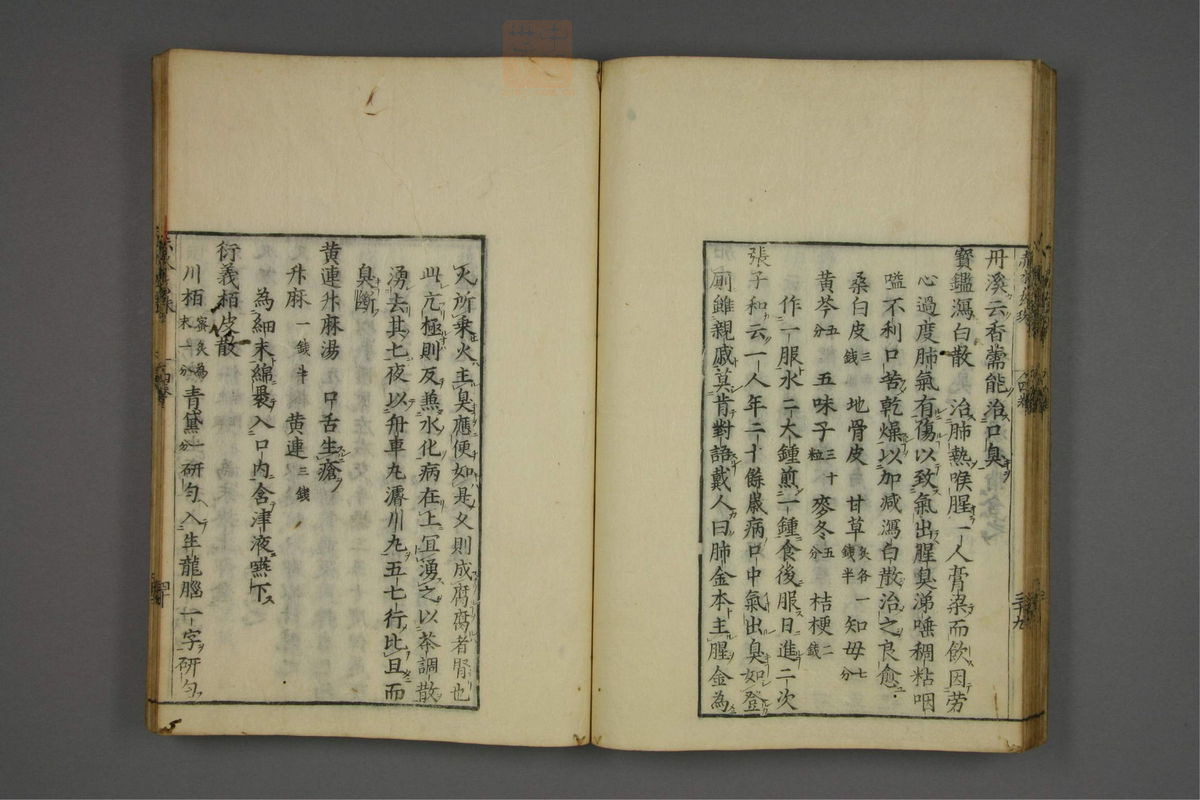 丹溪云香薷能治口臭
寳鑑瀉白散 治肺熱喉腥一人膏粱而飲因劳
心過度肺氣有傷以致氣出腥臭涕唾稠粘咽
嗌不利口苦乾燥以加减瀉白散治之良愈
桑白皮三錢 地骨皮 甘草炙各一錢半 知母七分
黄芩五分 五味子三十粒 麥冬五分 桔梗二錢
作一服水二大鍾煎一鍾食後服日進二次
張子和云一人年二十餘歳病口中氣出臭如登
厠雖親戚莫肯對語戴人曰肺金本主腥金為
火所乗火主臭應便如是久則成腐腐者腎也
此亢極則反兼水化病在上冝湧之以茶調散
湧去其七夜以舟車丸濬川丸五七行比旦而
臭断
黄連升麻湯 口舌生瘡
升麻一錢半 黄連三錢
為細末綿裹入口内含津液嚥下
衍義栢皮散
川栢蜜炙為末一分 青黛一分 研匀入生龍腦一字研匀